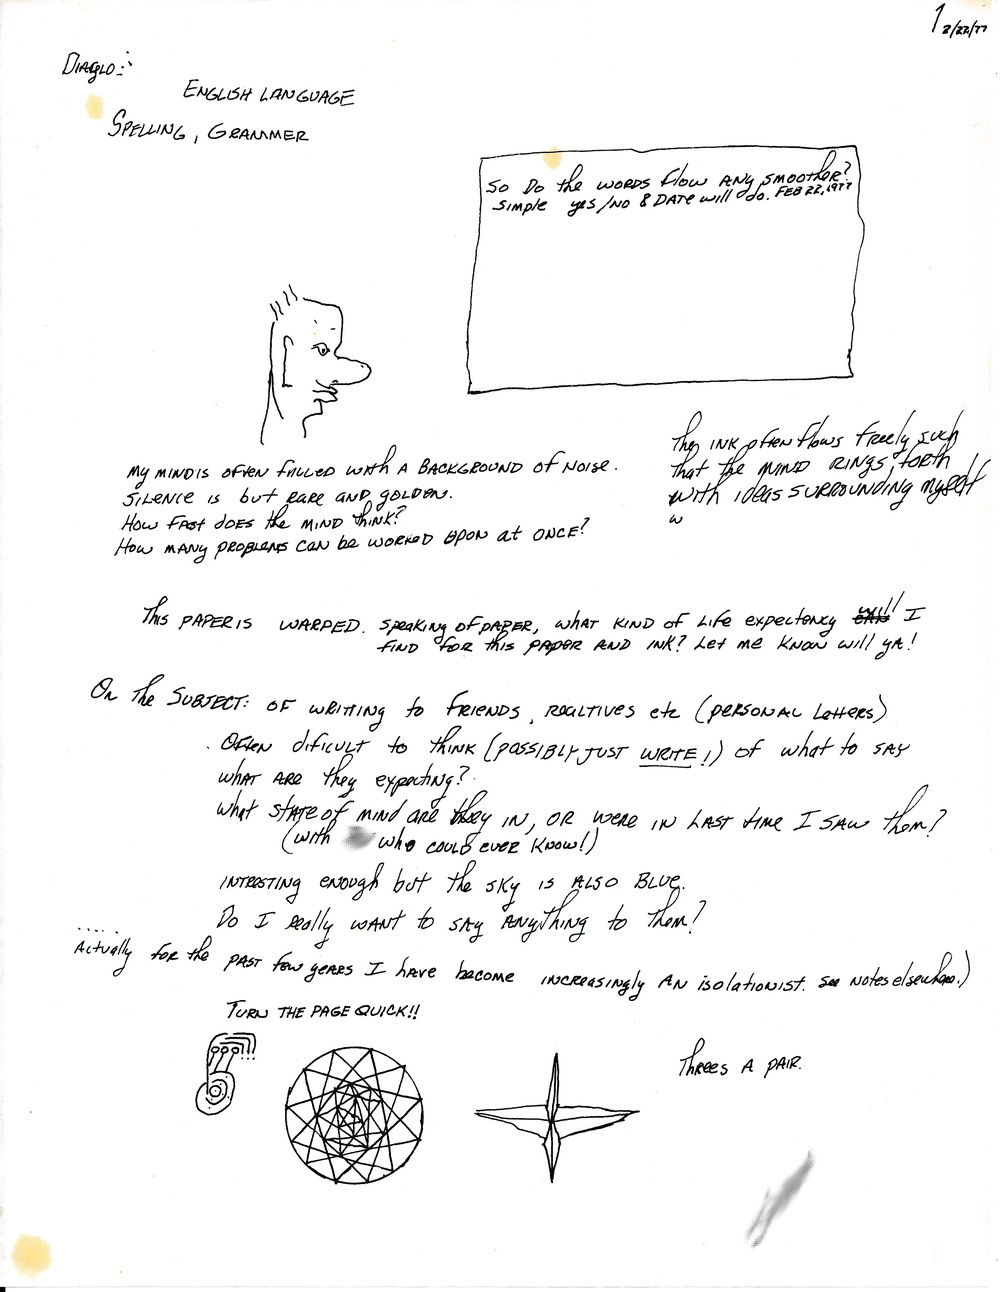 1 2/22/77
Diaglo:
ENGLISH LANGUAGE
SPELLING, GRAMMER
So Do the WORDS flow ANY SMOOTHER?
SIMPLE yes/NO & DATE will do. FEB 22, 1977
My MIND IS OFTEN FILLED WITH A BACKGROUND OF NOISE.
SILENCE IS but RARE AND golden.
How FAST DOES the MIND think?
How MANY PROBLEMS CAN be WORKED UPON at ONCE?
The INK often flows freely such
that the MIND RINGS forth
with ideas SURROUNDING myself
w
This PAPER IS WARPED. speaking of paper, what KIND of Life expectency I
FIND for this paper AND INK? Let me KNOW will ya!
On the SUBJECT: OF WRITING to FRIENDS, REALTIVES etc (PERSONAL LetteRS)
Often dificult to think (possibly JUST WRITE!) of what to SAY
what ARE they expecting?
What STATE of mind are they IN, OR WERE IN LAST time I SAW them?
(with who could ever Know!)
INTRESTING enough but the SKY IS ALSO BLUE.
Do I really WANT to SAY ANYthing to them?
.....
Actually for the PAST few years I have become INCREASINGLY AN isolationist. see Notes elsewhere.)
TURN THE PAGE QUICK!!
Threes A PAIR.